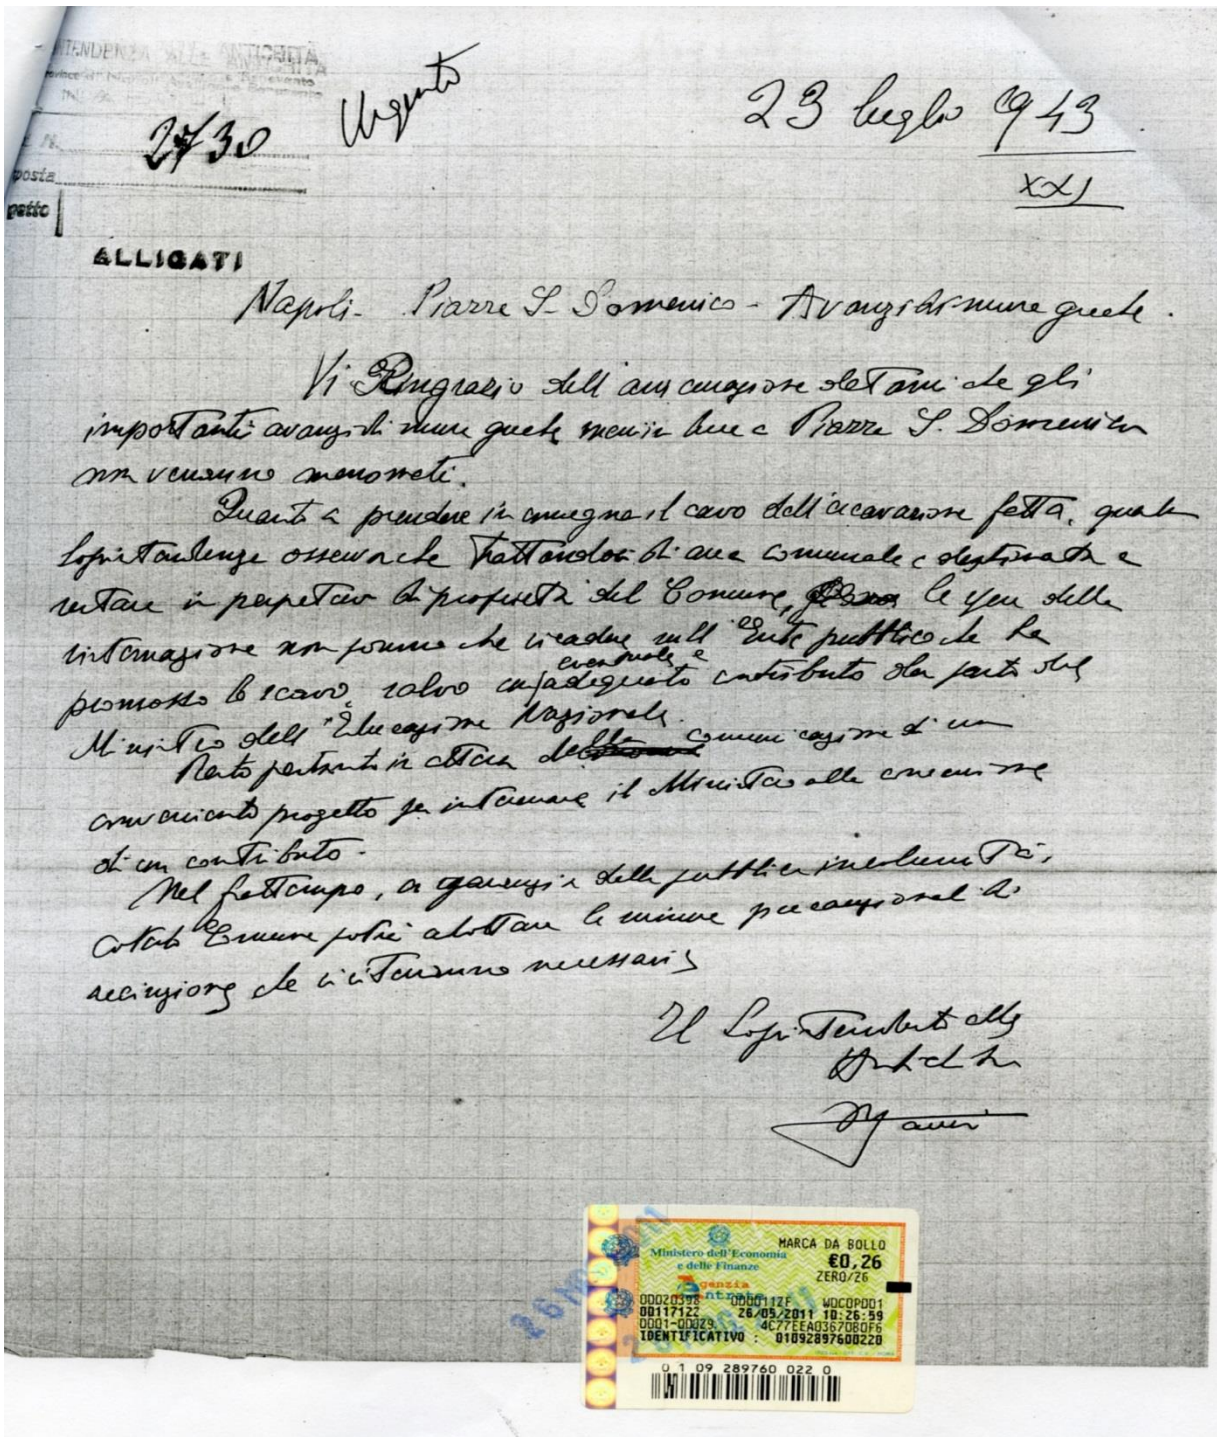 INTENDENZA ALLE ANTICHITÀ
2730
Urgente
23 luglio 943
XXI
posta
getto
ALLIGATI
Napoli - Piazza S. Domenico - Avanzi di mura greche.
Vi Ringrazio dell'assicurazione datami che gli
importanti avanzi di mura greche messi in luce a Piazza S. Domenico
non verranno manomessi.
Quanto a prendere in consegna il cavo dell'escavazione fatta, questa
Soprintendenza osserva che trattandosi di area comunale e destinata a
restare in perpetuo di proprietà del Comune, le spese della
sistemazione non possono che ricadere sull'Ente pubblico che ha
promosso lo scavo, salvo eventuale e adeguato contributo da parte del
Ministero dell'Educazione Nazionale.
Resto pertanto in attesa della comunicazione di un
conveniente progetto per interessare il Ministero alla concessione
di un contributo.
Nel frattempo, a garanzia della pubblica incolumità,
cotesto Comune potrà adottare le misure precauzionali di
recinzione che si riterranno necessarie
Il Soprintendente alle
Antichità
Maiuri
Ministero dell'Economia
e delle Finanze
MARCA DA BOLLO
€0,26
ZERO/26
Agenzia
Entrate
00020398 0000112F W0COP001
00117122 26/05/2011 10:26:59
0001-00029 4C77EEA0367080F6
IDENTIFICATIVO : 01092897600220
0 1 09 289760 022 0